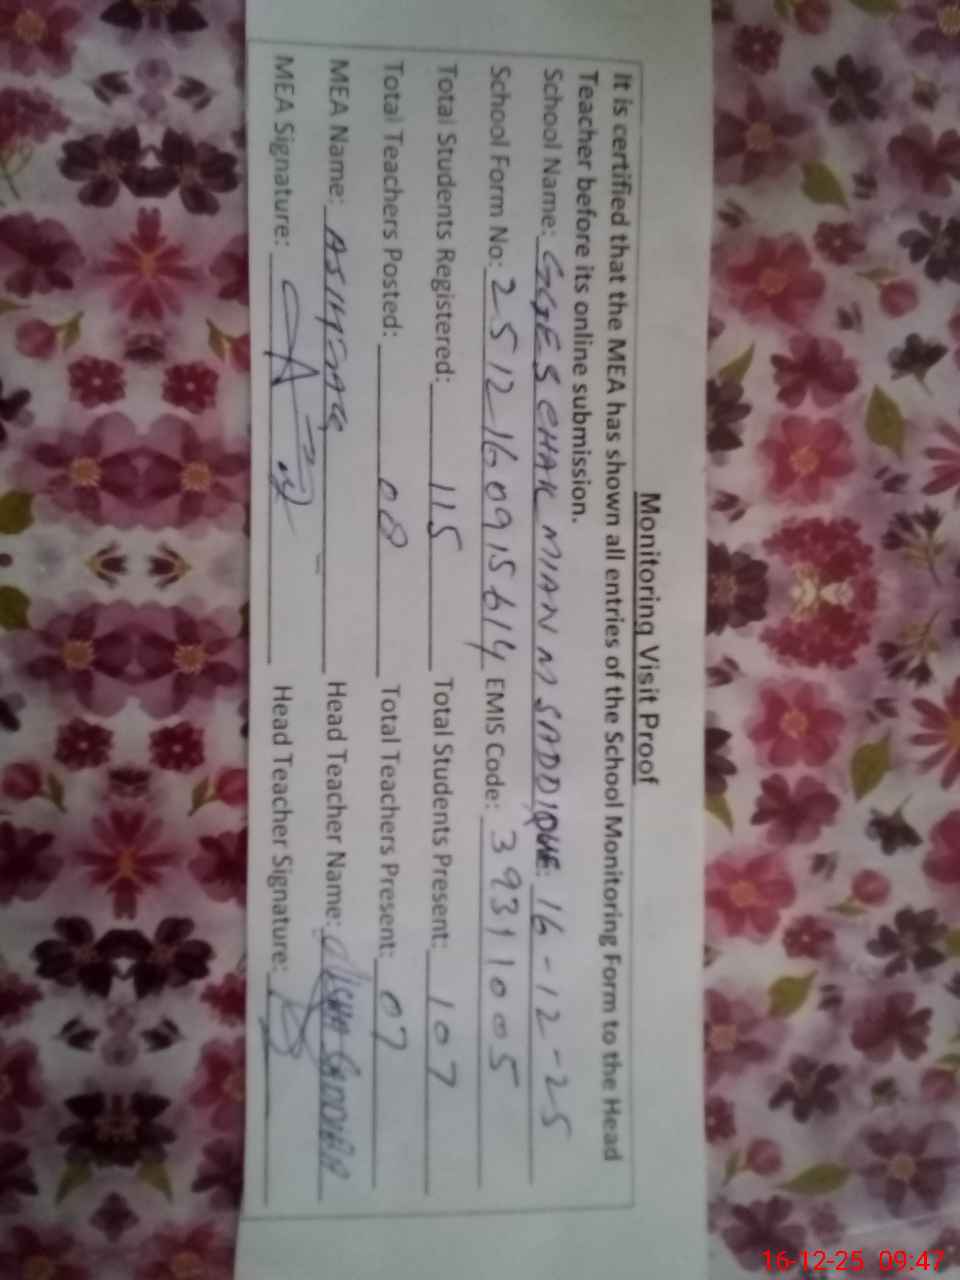 Monitoring Visit Proof
It is certified that the MEA has shown all entries of the School Monitoring Form to the Head
Teacher before its online submission.
School Name: GGES CHAK MIAN M SADDIQUE: 16-12-25
School Form No: 2512160915614 EMIS Code: 39311005
Total Students Registered: 115 Total Students Present: 107
Total Teachers Posted: 08 Total Teachers Present: 07
MEA Name: Head Teacher Name:
MEA Signature: Head Teacher Signature:
16-12-25 09:47